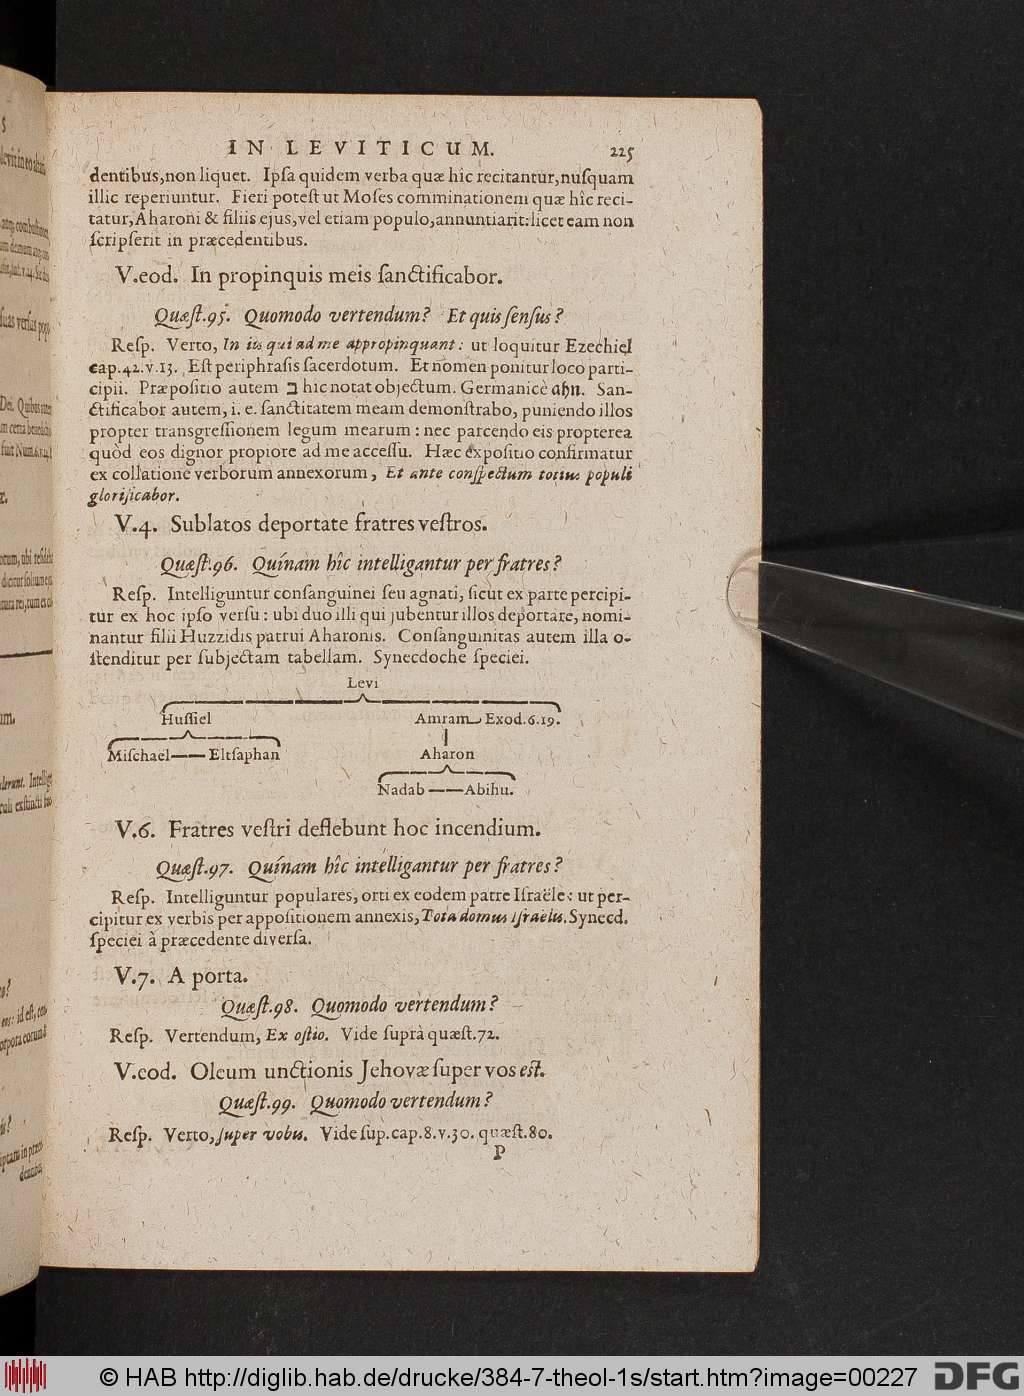 IN LEVITICUM. 225
dentibus, non liquet. Ipſa quidem verba quæ hîc recitantur, nuſquam
illic reperiuntur. Fieri poteſt ut Moſes comminationem quæ hîc reci-
tatur, Aharoni & filiis ejus, vel etiam populo, annuntiarit: licet eam non
ſcripſerit in præcedentibus.
V. eod. In propinquis meis ſanctificabor.
Quæſt. 95. Quomodo vertendum? Et quis ſenſus?
Reſp. Verto, In iis qui ad me appropinquant: ut loquitur Ezechiel
cap. 42. v. 13. Eſt periphraſis ſacerdotum. Et nomen ponitur loco parti-
cipii. Præpoſitio autem ב hic notat objectum. Germanicè ahn. San-
ctificabor autem, i. e. ſanctitatem meam demonſtrabo, puniendo illos
propter transgreſſionem legum mearum: nec parcendo eis propterea
quòd eos dignor propiore ad me acceſſu. Hæc expoſitio confirmatur
ex collatione verborum annexorum, Et ante conſpectum totius populi
glorificabor.
V. 4. Sublatos deportate fratres veſtros.
Quæſt. 96. Quínam hîc intelligantur per fratres?
Reſp. Intelliguntur conſanguinei ſeu agnati, ſicut ex parte percipi-
tur ex hoc ipſo verſu: ubi duo illi qui jubentur illos deportare, nomi-
nantur filii Huzzidis patrui Aharonis. Conſanguinitas autem illa o-
ſtenditur per ſubjectam tabellam. Synecdoche ſpeciei.
Levi
Huſſiel Amram Exod. 6. 19.
Miſchaël Eltſaphan Aharon
Nadab Abihu.
V. 6. Fratres veſtri deflebunt hoc incendium.
Quæſt. 97. Quínam hîc intelligantur per fratres?
Reſp. Intelliguntur populares, orti ex eodem patre Iſraële: ut per-
cipitur ex verbis per appoſitionem annexis, Tota domus Iſraëlis. Synecd.
ſpeciei à præcedente diverſa.
V. 7. A porta.
Quæſt. 98. Quomodo vertendum?
Reſp. Vertendum, Ex oſtio. Vide ſuprà quæſt. 72.
V. eod. Oleum unctionis Jehovæ ſuper vos est.
Quæſt. 99. Quomodo vertendum?
Reſp. Verto, ſuper vobis. Vide ſup. cap. 8. v. 30. quæſt. 80.
P
© HAB http://diglib.hab.de/drucke/384-7-theol-1s/start.htm?image=00227 DFG